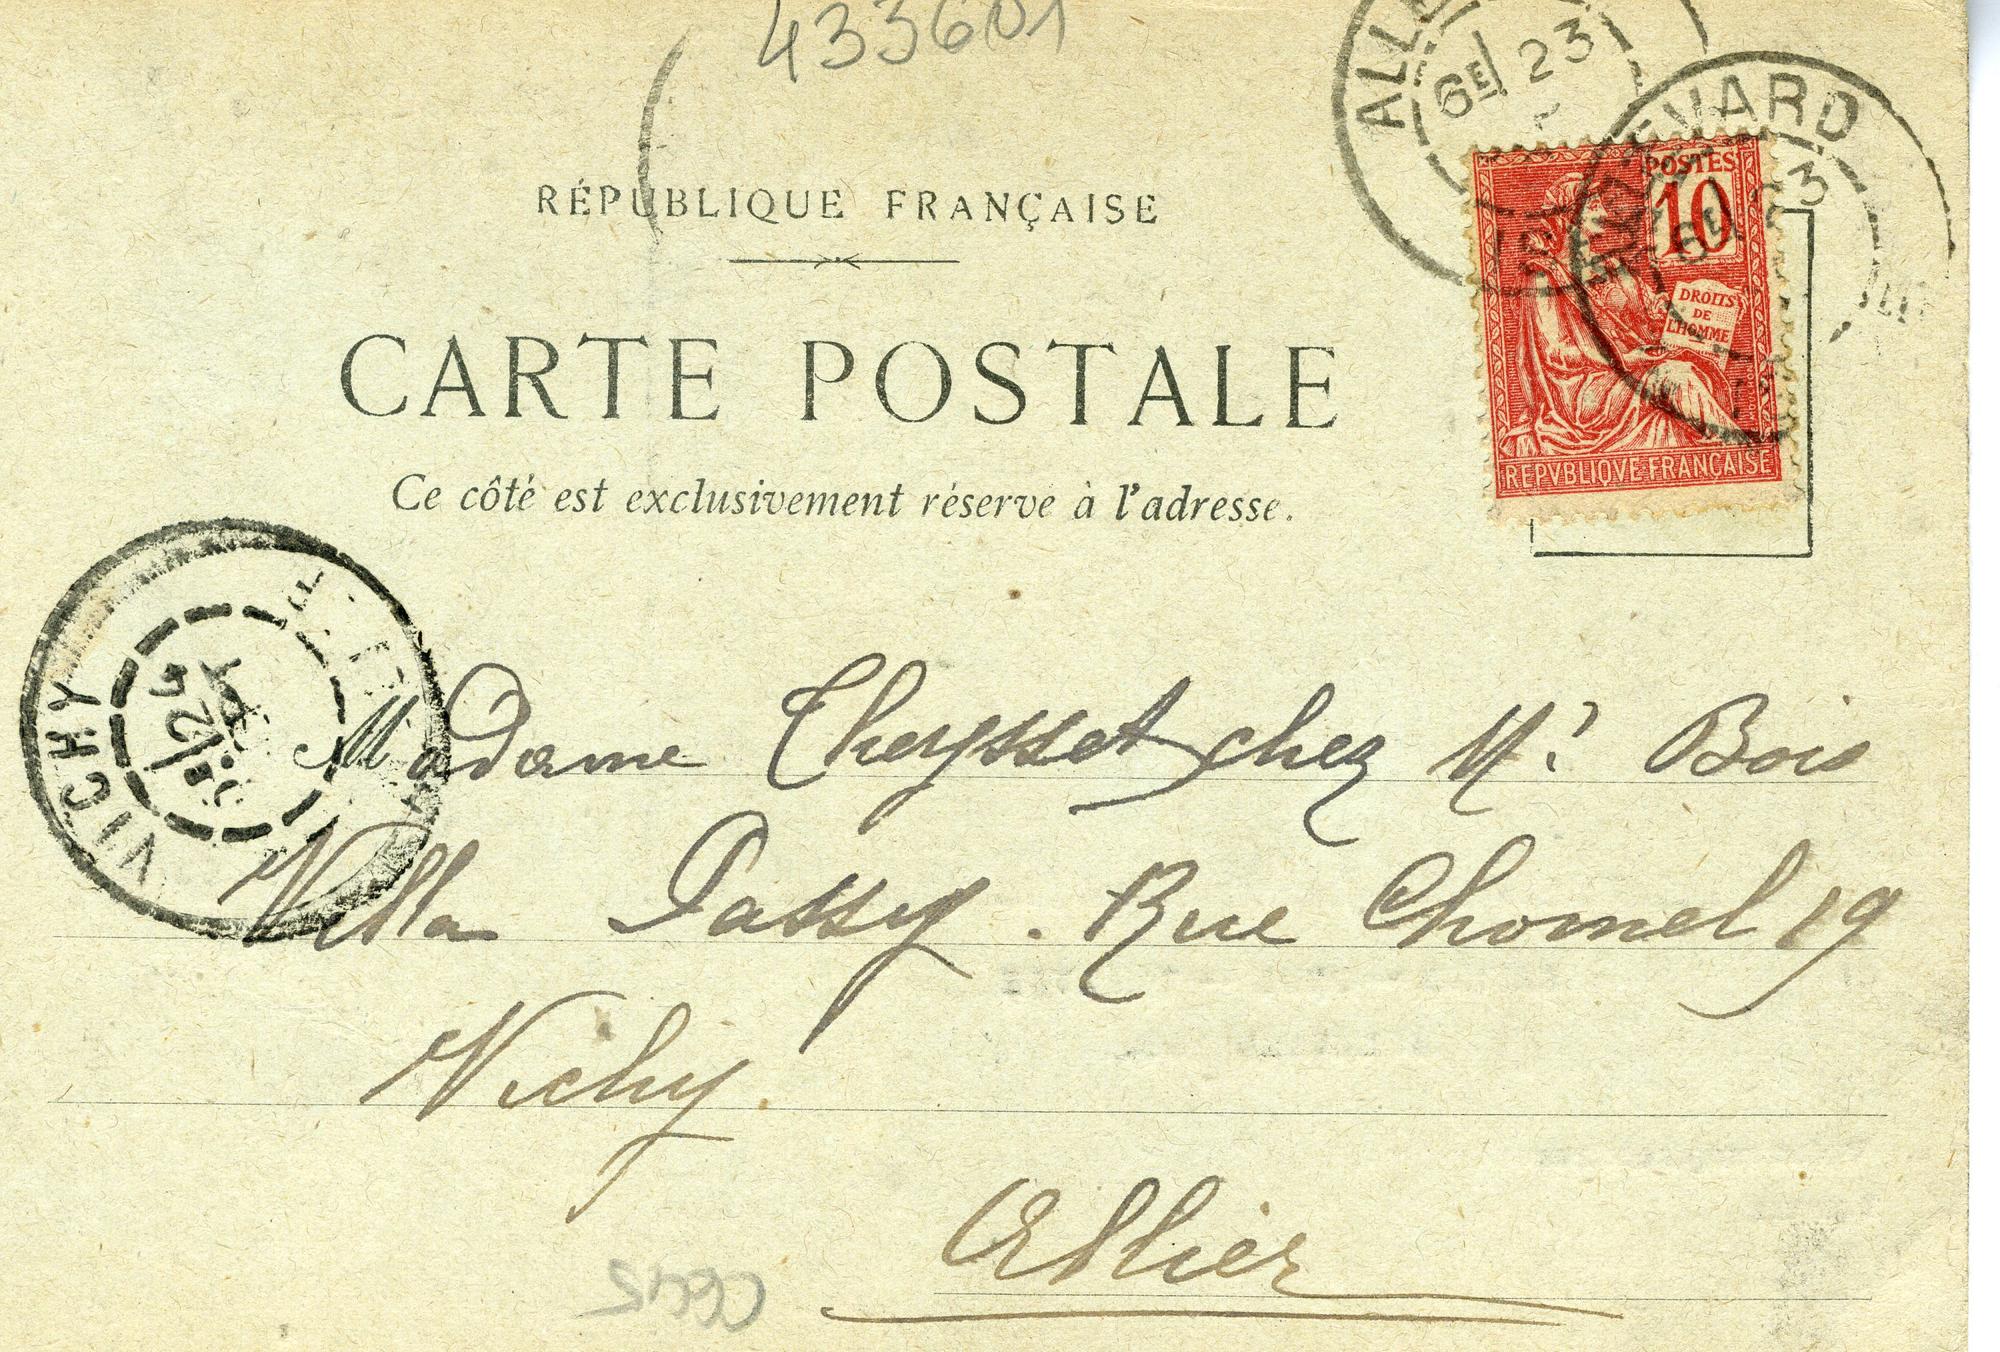 433601
ALLEVARD
6E 23
RÉPUBLIQUE FRANÇAISE
POSTES
10
DROITS
DE
L'HOMME
REPVBLIQVE FRANÇAISE
CARTE POSTALE
Ce côté est exclusivement réserve à l'adresse.
VICHY
24
Madame Cheysset chez Mr Bois
Villa Passy . Rue Chomel 19
Vichy
Allier